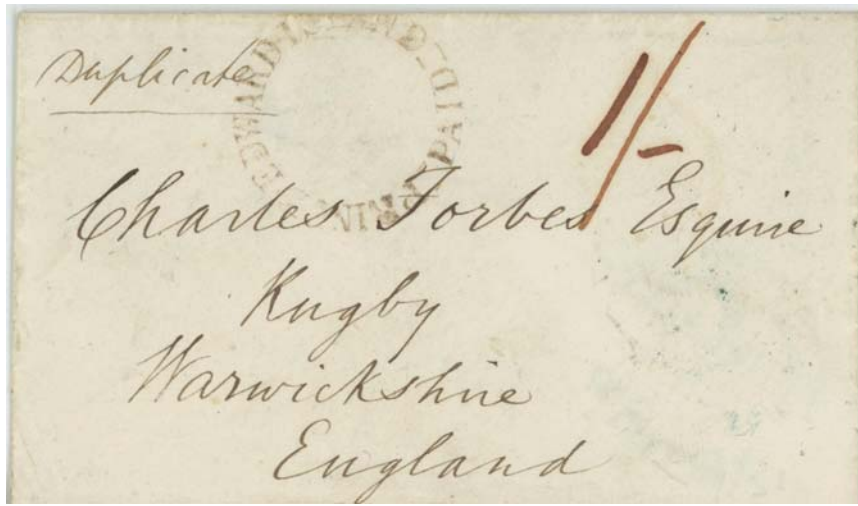 Duplicate
PRINCE EDWARD ISLAND PAID
1/-
Charles Forbes Esquire
Rugby
Warwickshire
England